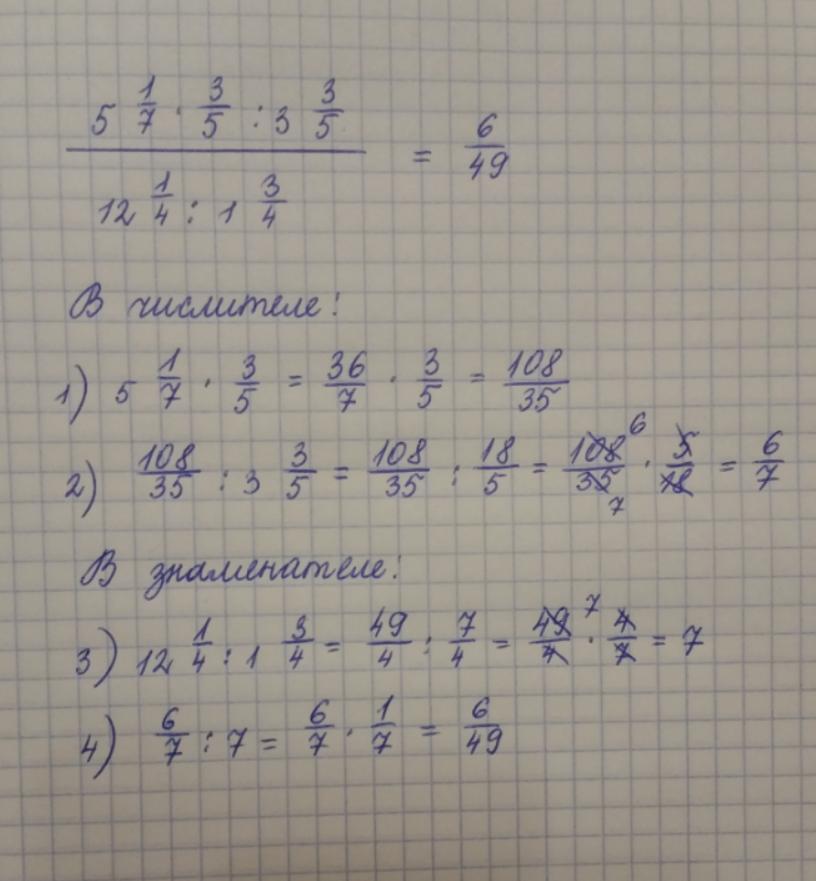 5 1/7 · 3/5 : 3 3/5
12 1/4 : 1 3/4
= 6/49
В числителе:
1) 5 1/7 · 3/5 = 36/7 · 3/5 = 108/35
2) 108/35 : 3 3/5 = 108/35 : 18/5 = 108 6/35 7 · 5/18 = 6/7
В знаменателе:
3) 12 1/4 : 1 3/4 = 49/4 : 7/4 = 49 7/4 · 4/7 = 7
4) 6/7 : 7 = 6/7 · 1/7 = 6/49